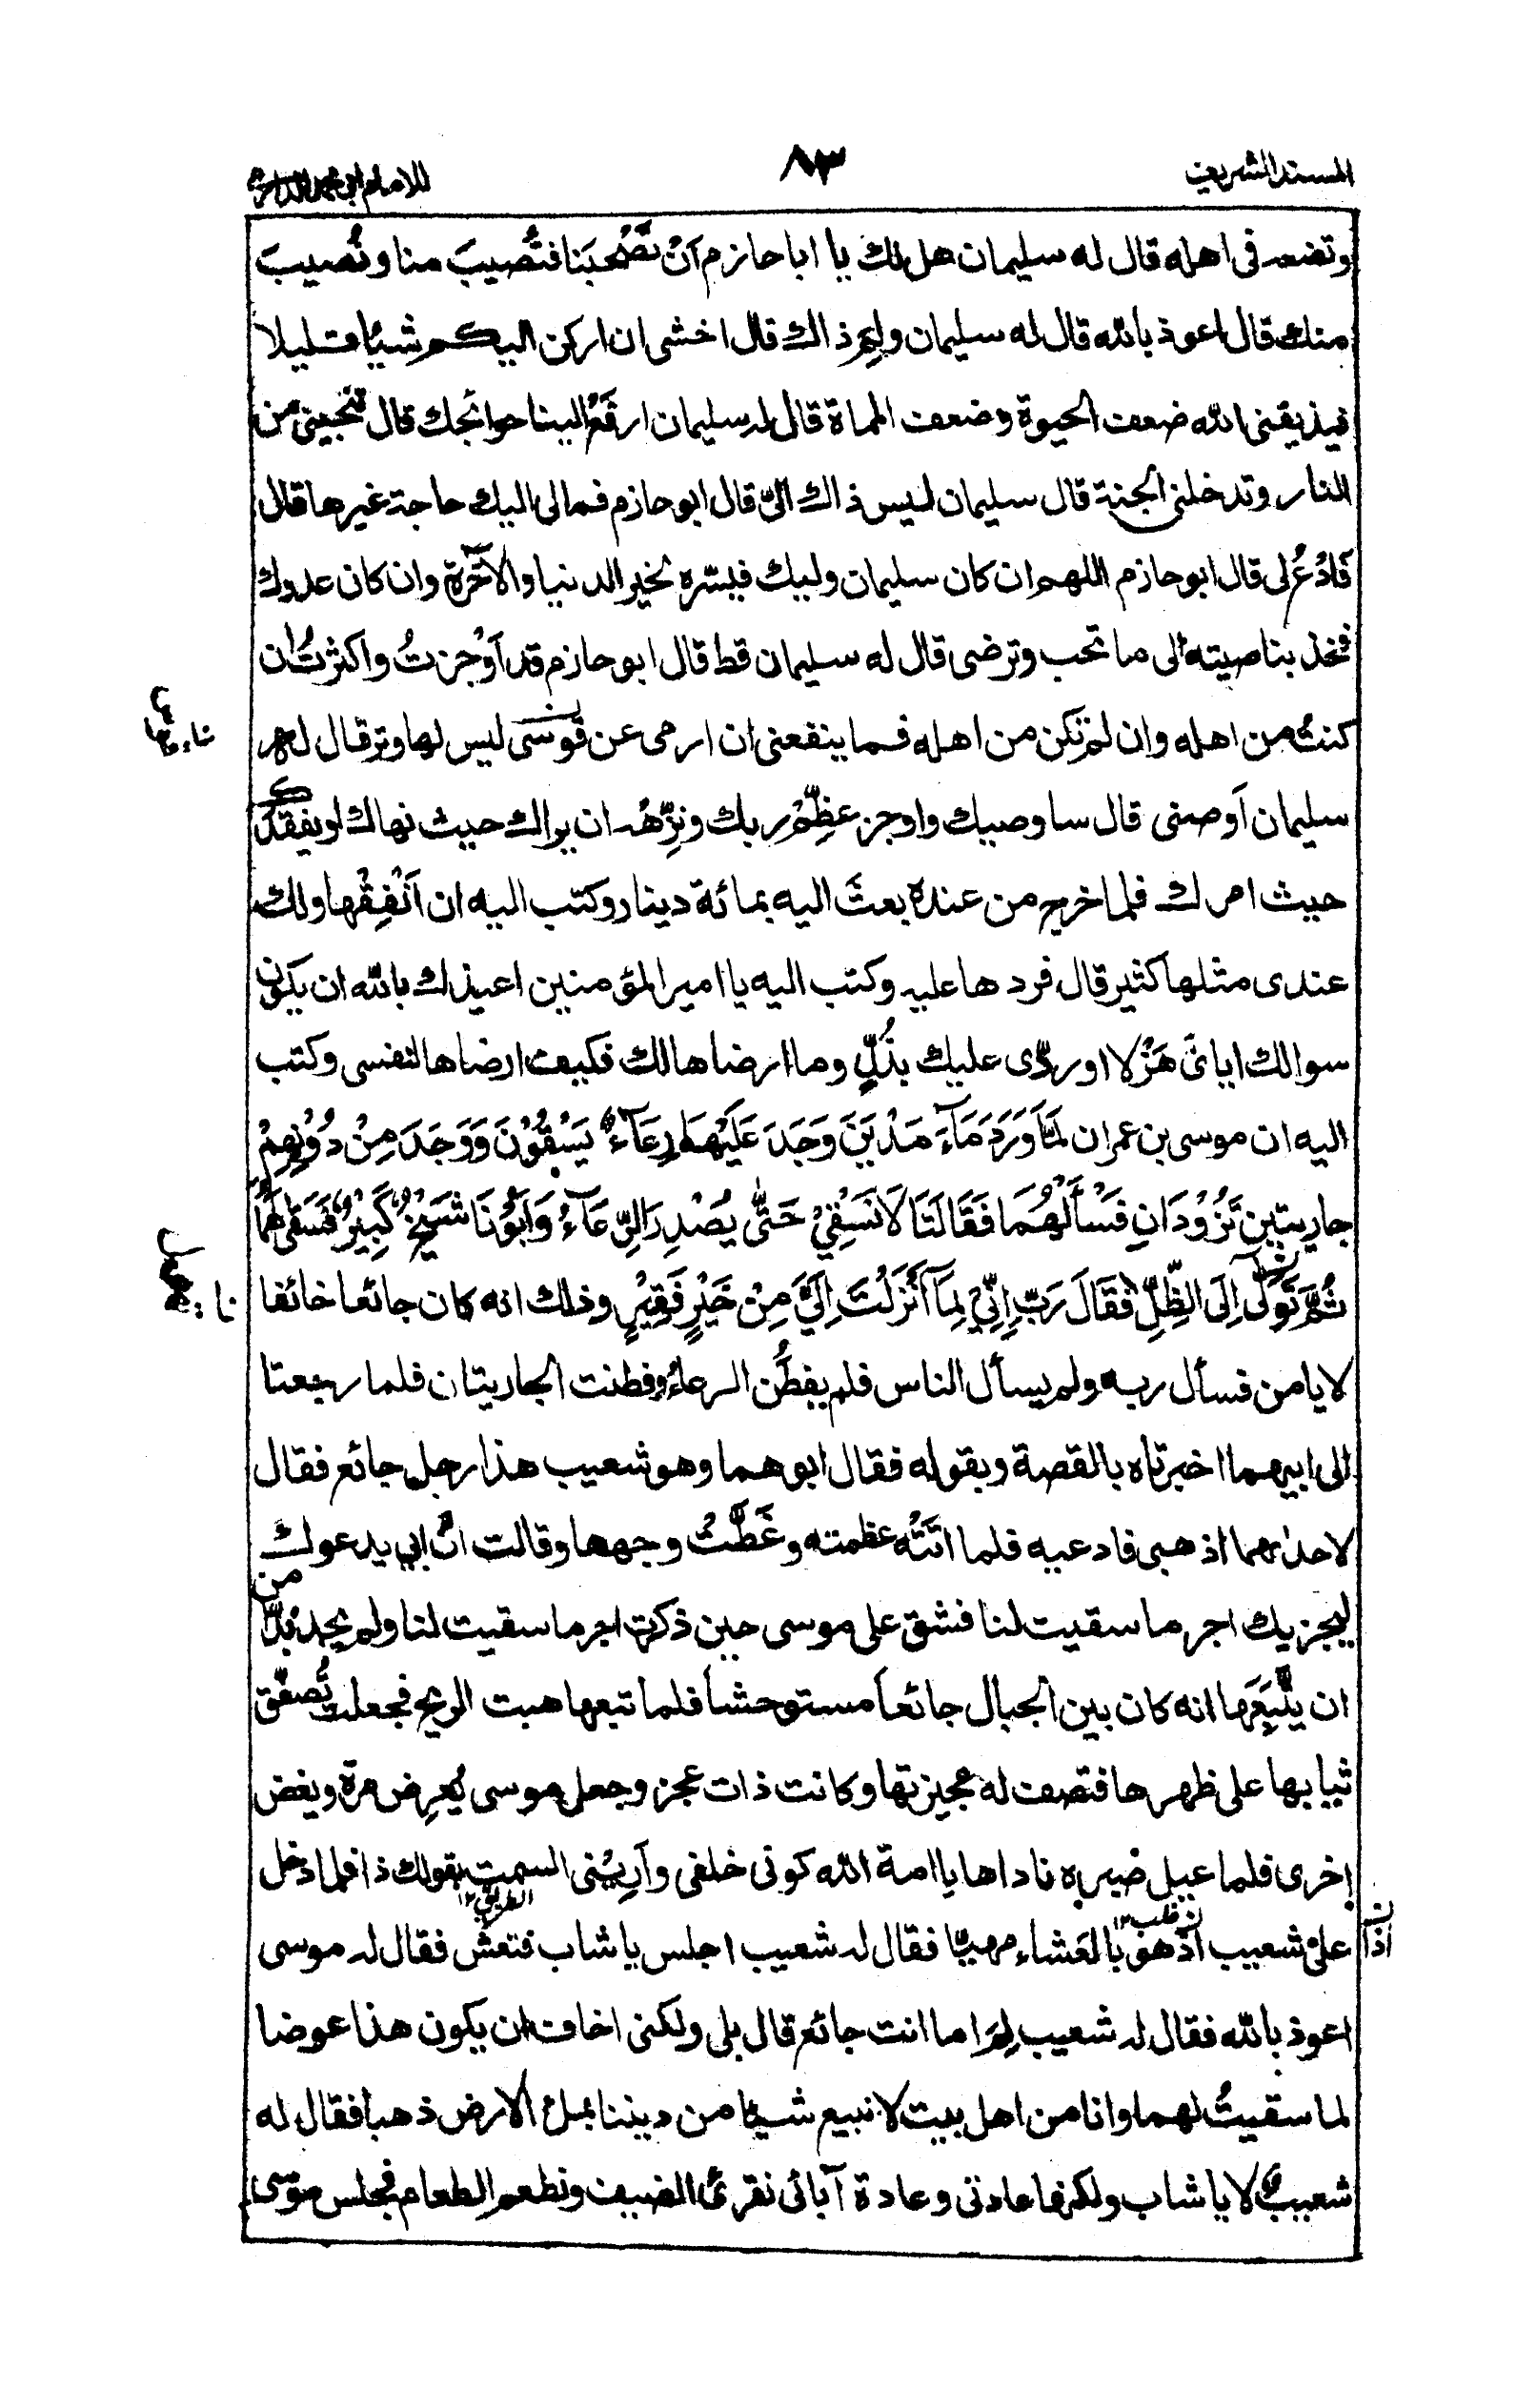 المسند الشريف
٨٣
للامام ابي محمد الدارمي
وتضعه فى اهله قال له سليمان هل لك يا ابا حازم اَنْ تَصْحَبَنا فتُصيبَ منا ونُصيبَ
منك قال اعوذ بالله قال له سليمان ولِمَ ذاك قال اخشى ان اركن اليكم شيئا قليلا
فيذيقنى الله ضعف الحيوة وضعف المماة قال له سليمان ارفَعْ الينا حوائجك قال تنجينى من
النار وتدخلنى الجنة قال سليمان ليس ذاك الىّ قال ابو حازم فما لى اليك حاجة غيرها قال
فَادْعُ لى قال ابو حازم اللهم ان كان سليمان وليك فيسّره لخير الدنيا والآخرة وان كان عدوك
فخذ بناصيته الى ما تحب وترضى قال له سليمان قط قال ابو حازم قد اَوْجزتُ واكثرتُ ان
كنتَ من اهله وان لم تكن من اهله فما ينفعنى ان ارمى عن قوسى ليس لها وتر قال له
سليمان اَوصنى قال ساوصيك واوجز عظِّمْ ربك ونزِّهْه ان يراك حيث نهاك او يفقدك
حيث امرك فلما خرج من عنده بعثَ اليه بمائة دينار وكتب اليه ان اَنْفِقْها ولك
عندى مثلها كثير قال فردها عليه وكتب اليه يا امير المؤمنين اعيذك بالله ان يكون
سوالك اياىَ هَزْلا او ردّى عليك بذُلٍّ وما ارضاها لك فكيف ارضاها لنفسى وكتب
اليه ان موسى بن عمران لَمَّا وَرَدَ مَآءَ مَدْيَنَ وَجَدَ عَلَيْهَا رِعَآءً يَسْقُوْنَ وَوَجَدَ مِنْ دُوْنِهِمْ
جاريتين تَزُوْدَانِ فَسْأَلَهُمَا فَقَالَتَا لَا نَسْقِيْ حَتّٰى يُصْدِرَ الرِّعَآءُ وَاَبُوْنَا شَيْخٌ كَبِيْرٌ فَسَقٰى لَهُمَا
ثُمَّ تَوَلّٰى اِلَى الظِّلِّ فَقَالَ رَبِّ اِنِّيْ لِمَآ اَنْزَلْتَ اِلَيَّ مِنْ خَيْرٍ فَقِيْرٌ وذلك انه كان جائعا خائفا
لا يامن فسأل ربه ولم يسأل الناس فلم يفطَن الرعاءُ وفطنت الجاريتان فلما رجعتا
الى ابيهما اخبرتاه بالقصة وبقوله فقال ابوهما وهو شعيب هذا رجل جائع فقال
لاحدٰىهما اذهبى فادعيه فلما اتَتْه عظمته وغَطَّتْ وجهها وقالت انّ ابي يدعوك
ليجزيك اجر ما سقيت لنا فشق على موسى حين ذكرت اجر ما سقيت لنا ولم يجد بُدًّا من
ان يتْبَعَها انه كان بين الجبال جائعاً مستوحشاً فلما تبعها هبت الريح فجعلت تُصفّق
ثيابها على ظهرها فتصف له عجيزتها وكانت ذات عجز وجعل موسى يُعرِض مرة ويغض
اخرى فلما عيل صبره ناداها يا امة الله كونى خلفى وأَرِيْنى السمت بقولك ذا فلما دخل
الطريق ١٢
على شعيب اذ هو بالعَشاء مهيئا فقال له شعيب اجلس يا شاب فتعشّ فقال له موسى
ن اذا
اعوذ بالله فقال له شعيب لِمَ اما انت جائع قال بلى ولكنى اخاف ان يكون هذا عوضا
لما سقيتُ لهما وانا من اهل بيت لا نبيع شيئا من ديننا بملئ الارض ذهبا فقال له
شعيب لا يا شاب ولكنها عادتى وعادة آبائى نقرئ الضيف ونطعم الطعام فجلس موسى